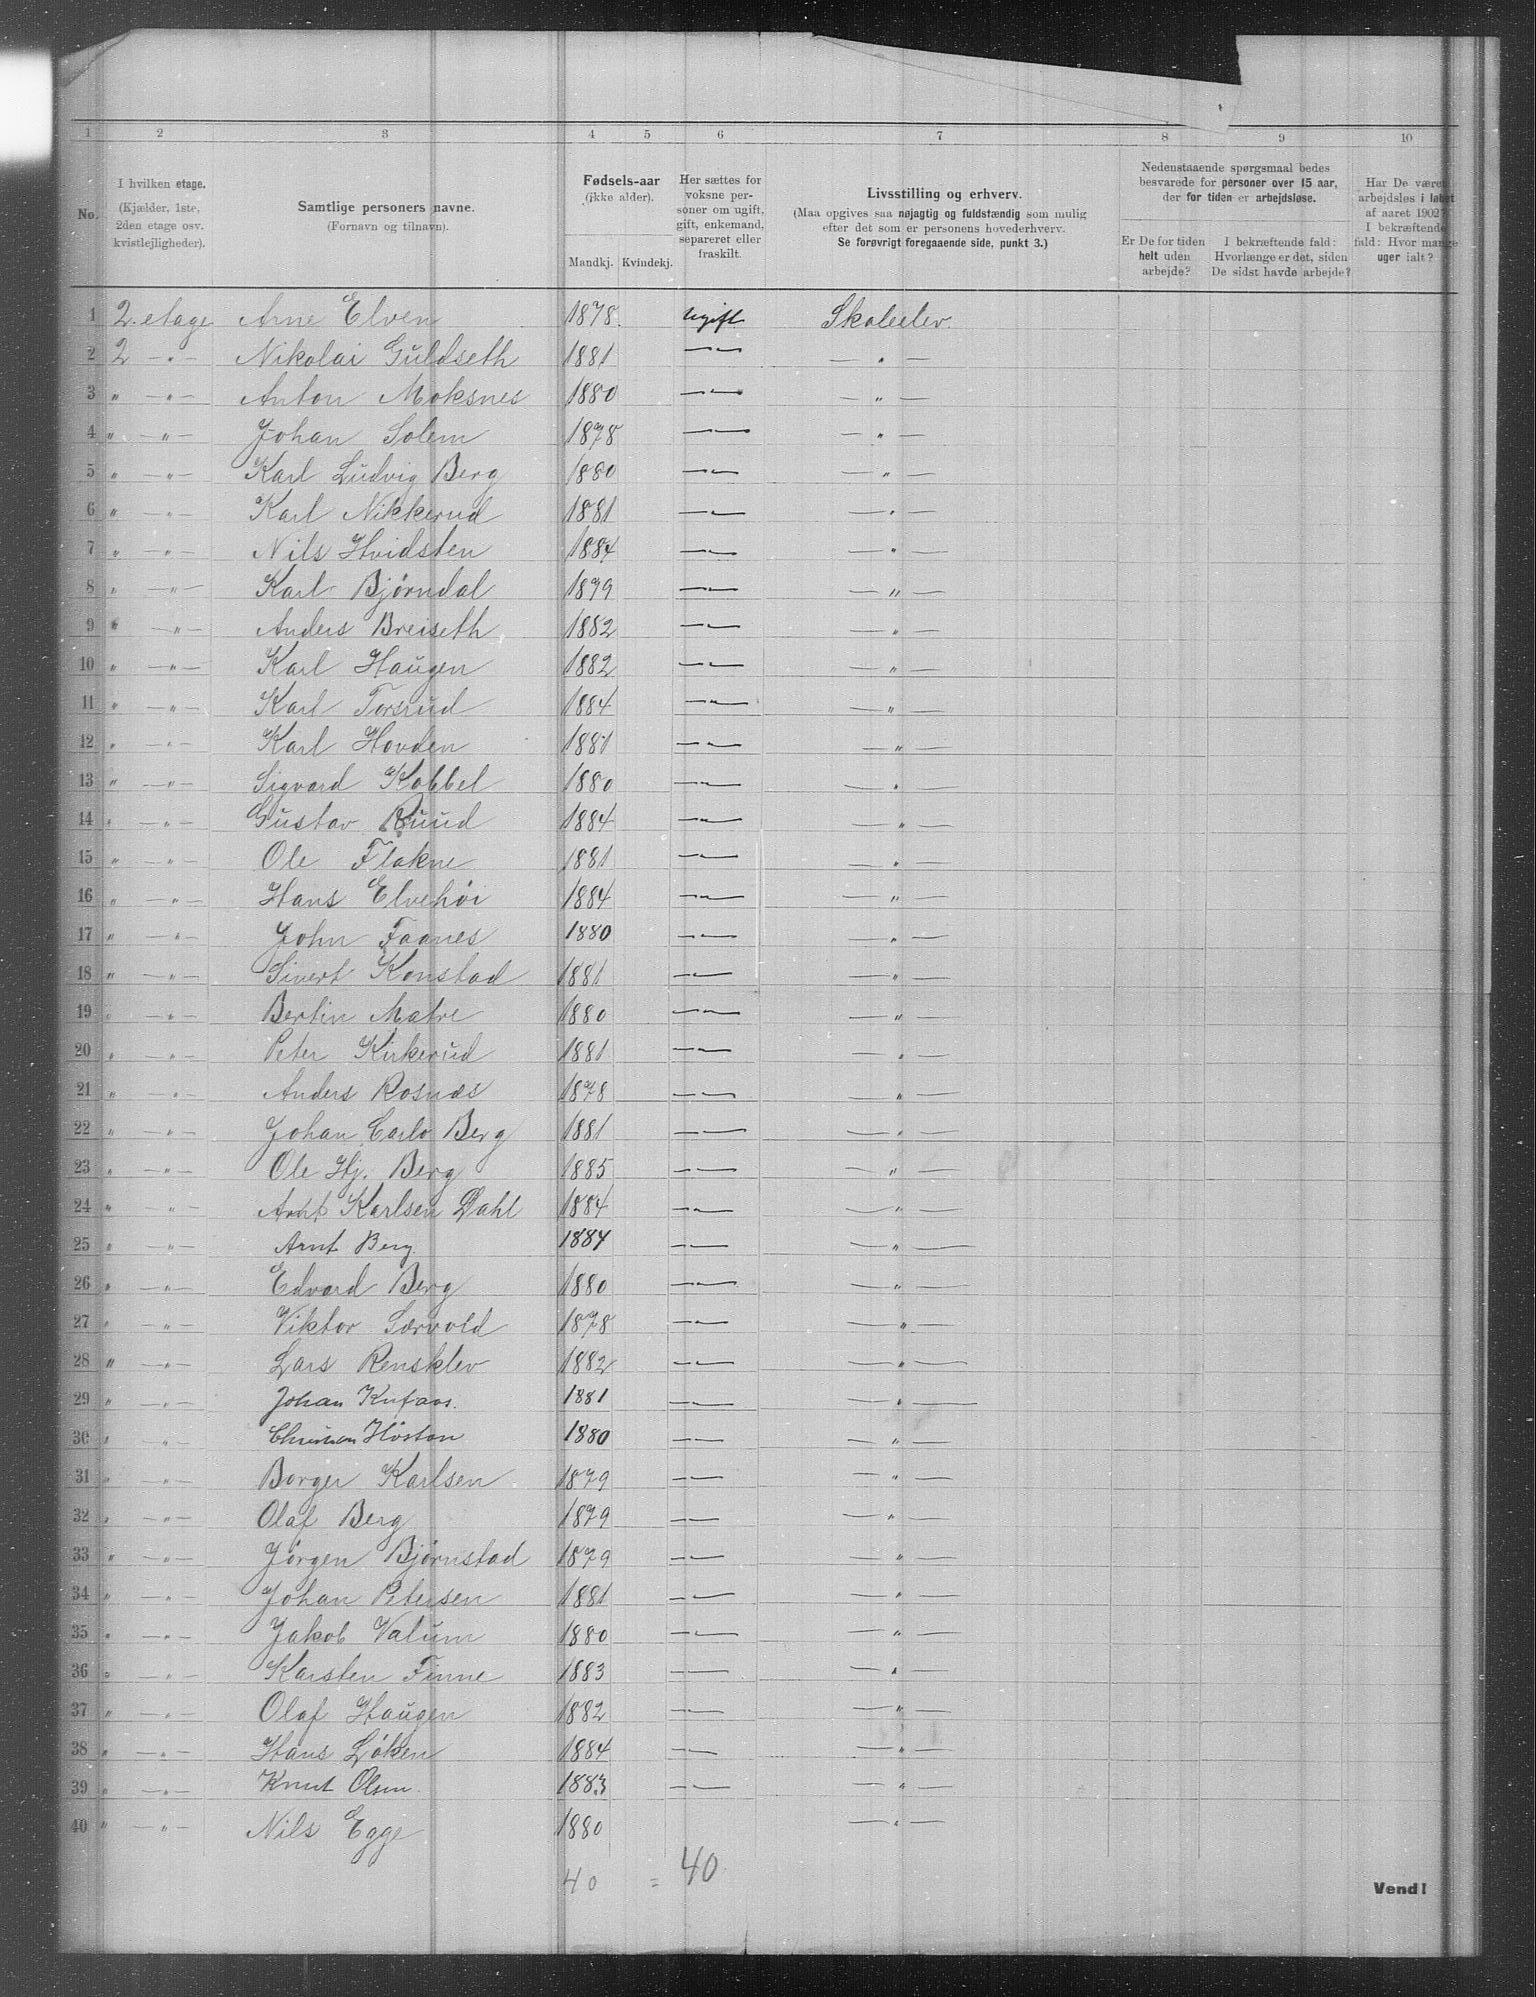 1 2 3 4 5 6 7 8 9 10
No. I hvilken etage. (Kjælder, 1ste, 2den etage osv. kvistlejligheder).
Samtlige personers navne. (Fornavn og tilnavn).
Fødsels-aar (ikke alder). Mandkj. Kvindekj.
Her sættes for voksne personer om ugift, gift, enkemand, separeret eller fraskilt.
Livsstilling og erhverv.
(Maa opgives saa nøjagtig og fuldstændig som mulig efter det som er personens hovederhverv.
Se forøvrigt foregaaende side, punkt 3.)
Nedenstaaende spørgsmaal bedes besvarede for personer over 15 aar, der for tiden er arbejdsløse.
Er De for tiden helt uden arbejde?
I bekræftende fald: Hvorlænge er det, siden De sidst havde arbejde?
Har De været arbejdsløs i løbet af aaret 1902? I bekræftende fald: Hvor mange uger ialt?
1 2. etage Arne Elven 1878. ugift Skoleelev.
2 2 — " — Nikolai Guldseth 1881 — " — — " —
3 " — " — Anton Moksnes 1880 — " — — " —
4 " — " — Johan Solem 1878 — " — — " —
5 " — " — Karl Ludvig Berg 1880 — " — — " —
6 " — " — Karl Nikkerud 1881 — " — — " —
7 " — " — Nils Hvidsten 1884 — " — — " —
8 " — " — Karl Bjørndal 1879 — " — — " —
9 " — " — Anders Breiseth 1882 — " — — " —
10 " — " — Karl Haugen 1882 — " — — " —
11 " — " — Karl Torsrud 1884 — " — — " —
12 " — " — Karl Hovden 1881 — " — — " —
13 " — " — Sigvard Kobbel 1880 — " — — " —
14 " — " — Gustav Ruud 1884 — " — — " —
15 " — " — Ole Flakne 1881 — " — — " —
16 " — " — Hans Elvehøi 1884 — " — — " —
17 " — " — John Faanes 1880 — " — — " —
18 " — " — Sivert Konstad 1881 — " — — " —
19 " — " — Bertin Matre 1880 — " — — " —
20 " — " — Peter Kirkerud 1881 — " — — " —
21 " — " — Anders Rosnæs 1878 — " — — " —
22 " — " — Johan Carlo Berg 1881 — " — — " —
23 " — " — Ole Hj. Berg 1885 — " — — " —
24 " — " — Arnt Karlsen Dahl 1884 — " — — " —
25 " — " — Arnt Berg 1884 — " — — " —
26 " — " — Edvard Berg 1880 — " — — " —
27 " — " — Viktor Sørvold 1878 — " — — " —
28 " — " — Lars Rensklev 1882 — " — — " —
29 " — " — Johan 1881 — " — — " —
30 " — " — Christian 1880 — " — — " —
31 " — " — Borger Karlsen 1879 — " — — " —
32 " — " — Olaf Berg 1879 — " — — " —
33 " — " — Jørgen Bjørnstad 1879 — " — — " —
34 " — " — Johan Petersen 1881 — " — — " —
35 " — " — Jakob Valum 1880 — " — — " —
36 " — " — Karsten Finne 1883 — " — — " —
37 " — " — Olaf Haugen 1882 — " — — " —
38 " — " — Hans Løken 1884 — " — — " —
39 " — " — Knut Olsen. 1883 — " — — " —
40 " — " — Nils Egge 1880 — " —
40 = 40
Vend!